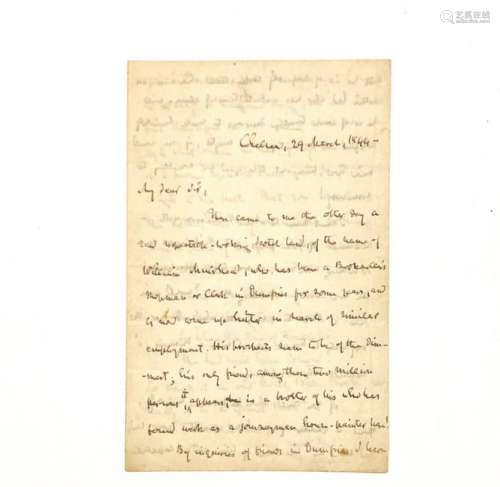 艺典在线
yidianchina.com
Chelsea, 29 March, 1844 —
My dear Sir,
There came to me the other day a
looking Scotch lad, of the name of
William Muirhead; who has been a Bookseller's
Shopman or Clerk in Dumfries for some years, and
is now come up hither in search of similar
employment. His brothers seem to be of the
his only friend among these two million
persons it appears is a brother of his who has
found work as a journeyman house-painter here!
By inquiries of friends in Dumfries I learn